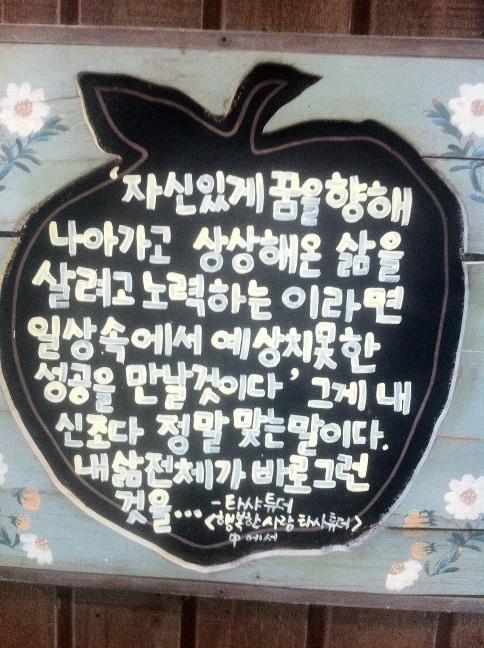 '자신있게 꿈을 향해
나아가고 상상해온 삶을
살려고 노력하는 이라면
일상속에서 예상치못한
성공을 만날것이다' 그게 내
신조다 정말 맞는말이다.
내삶전체가 바로그런
것을... -타샤튜더
<행복한 사람 타샤튜더>
中에서